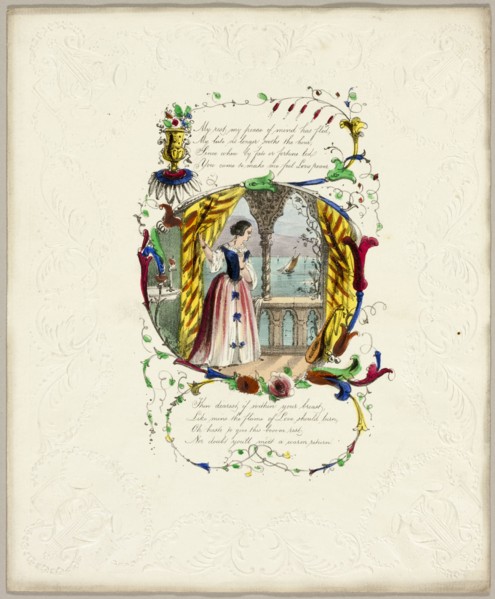 My rest, my peace of mind has fled,
My lute no longer soothes the hour,
Since when by fate or fortune led,
You came to make me feel Loves power
Then dearest if within your breast,
Like mine the flame of Love should burn,
Oh haste to give this bosom rest,
Nor doubt you'll meet a warm return